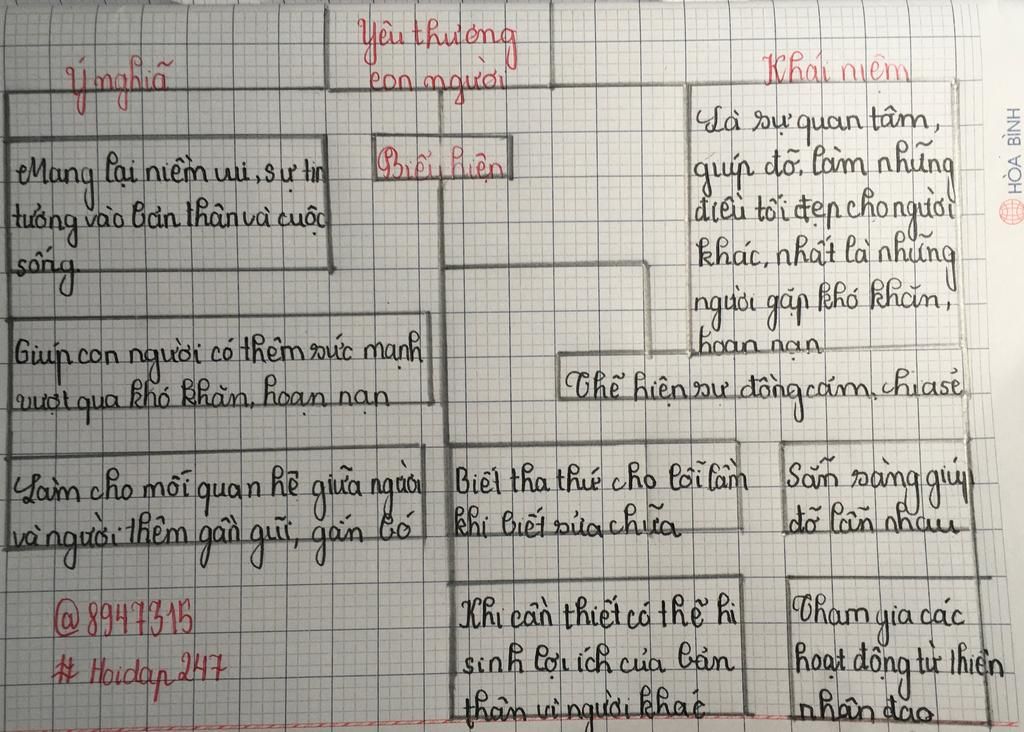 Yêu thương
con người
Ý nghĩã
Mang lại niềm vui, sự tin
tưởng vào bản thân và cuộc
sống.
Giúp con người có thêm sức mạnh
vượt qua khó khăn, hoạn nạn
Làm cho mối quan hệ giữa người
và người thêm gần gũi, gắn bó
@8947315
# Hoidap247
Biểu hiện
Thể hiện sự đồng cảm, chia sẻ
Biết tha thứ cho lỗi lầm
khi biết sửa chữa
Sẵn sàng giúp
đỡ lẫn nhau
Khi cần thiết có thể hi
sinh lợi ích của bản
thân vì người khác
Tham gia các
hoạt động từ thiện
nhân đạo
Khái niệm
Là sự quan tâm,
giúp đỡ, làm những
điều tốt đẹp cho người
khác, nhất là những
người gặp khó khăn,
hoạn nạn
HÒA BÌNH